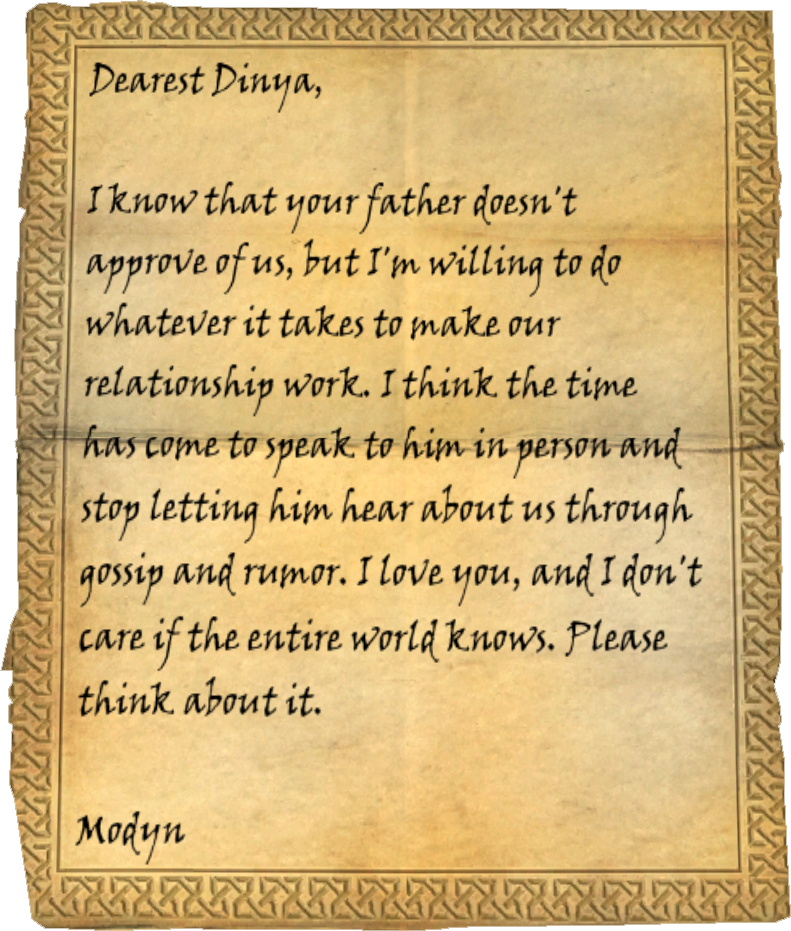 Dearest Dinya,
I know that your father doesn't
approve of us, but I'm willing to do
whatever it takes to make our
relationship work. I think the time
has come to speak to him in person and
stop letting him hear about us through
gossip and rumor. I love you, and I don't
care if the entire world knows. Please
think about it.
Modyn